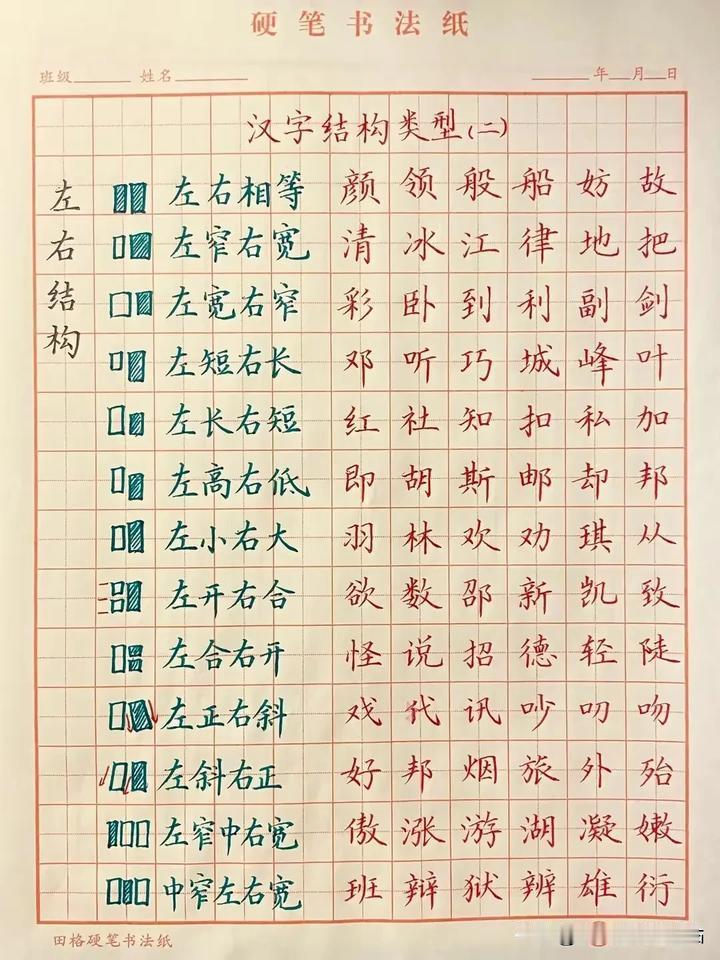 硬笔书法纸
班级 姓名 年 月 日
汉字结构类型(二)
左右结构
左右相等 颜 领 般 船 妨 故
左窄右宽 清 冰 江 律 地 把
左宽右窄 彩 卧 到 利 副 剑
左短右长 邓 听 巧 城 峰 叶
左长右短 红 社 知 扣 私 加
左高右低 即 胡 斯 邮 却 邦
左小右大 羽 林 欢 劝 琪 从
左开右合 欲 数 邵 新 凯 致
左合右开 怪 说 招 德 轻 陡
左正右斜 戏 代 讯 吵 叨 吻
左斜右正 好 邦 烟 旅 外 殆
左窄中右宽 傲 涨 游 湖 凝 嫩
中窄左右宽 班 辩 狱 辨 雄 衍
田格硬笔书法纸